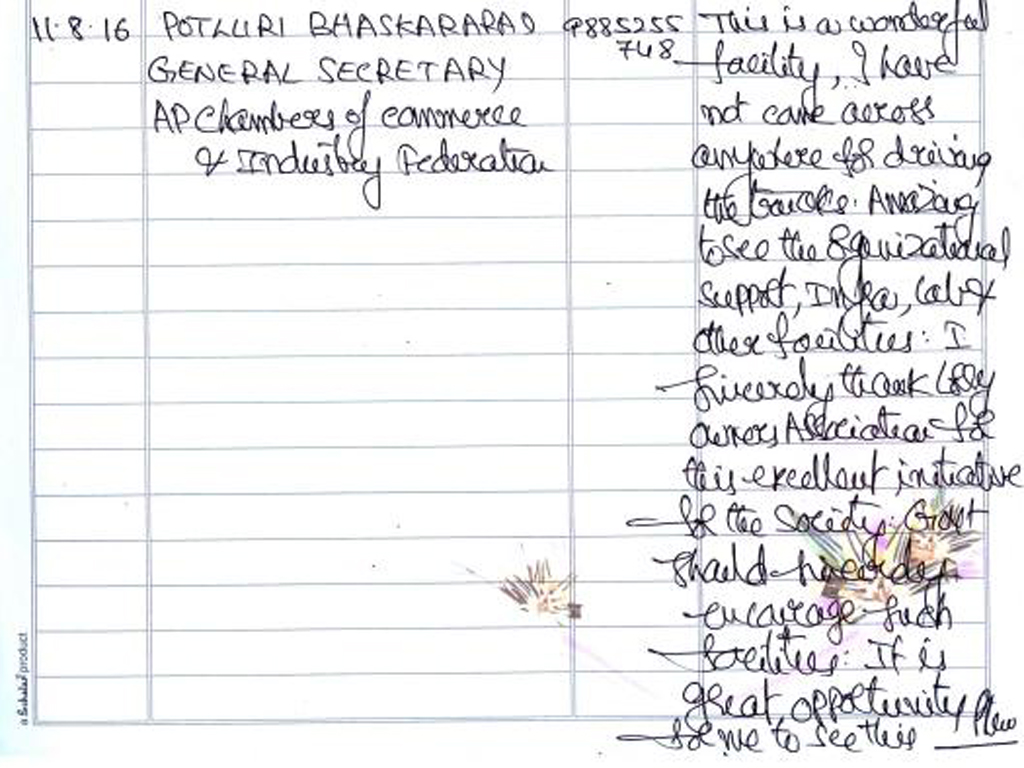 11.8.16
POTLURI BHASKARARAO
GENERAL SECRETARY
AP Chambers of commerce
& Industry Federation
9885255
748
This is a wonderful
facility, I have
not came across
anywhere for driving
the trucks. Amazing
to see the Organizational
support, Infra, Lab &
other facilities. I
sincerely thank Lorry
owners Association for
this excellent initiative
for the society. Govt
should sincerely
encourage such
facilities. It is
great opportunity
for me to see this
a Sabalaf product